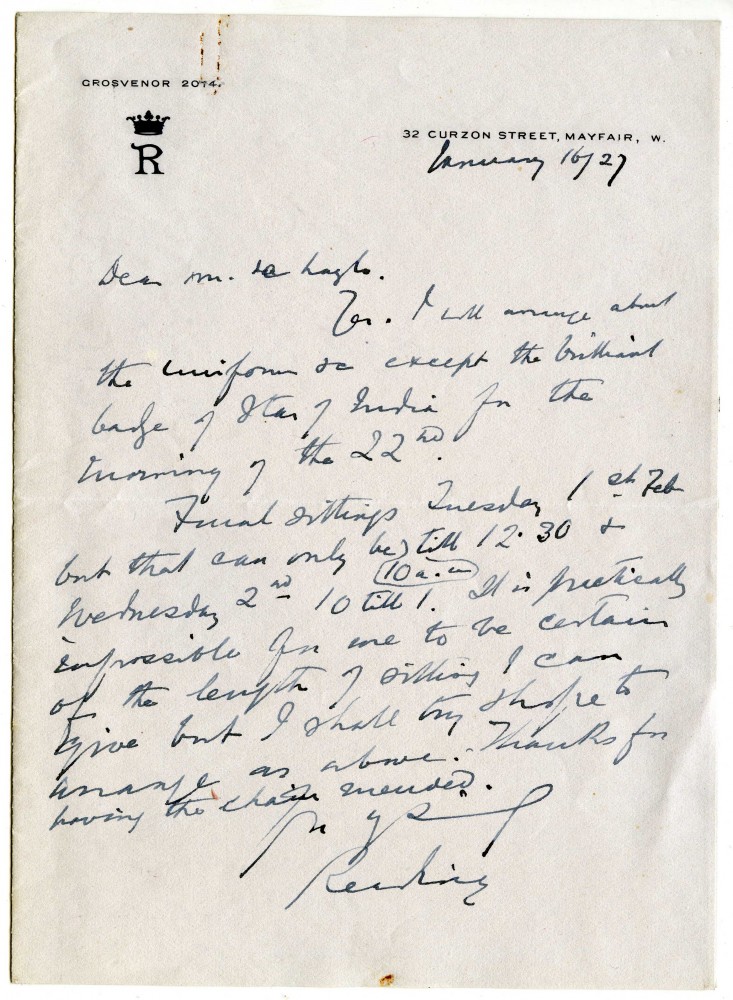 GROSVENOR 2074.
R
32 CURZON STREET, MAYFAIR, W.
January 16/27
Dear Mr. de Laszlo.
Yes. I will arrange about
the uniform &c except the brilliant
badge of Star of India for the
morning of the 22nd.
Final sittings Tuesday 1st Feb
but that can only be till 12.30 &
10 a.m
Wednesday 2nd 10 till 1. It is practically
impossible for me to be certain
of the length of sitting I can
give but I shall try & hope to
arrange as above. Thanks for
having the chain mended.
Reading